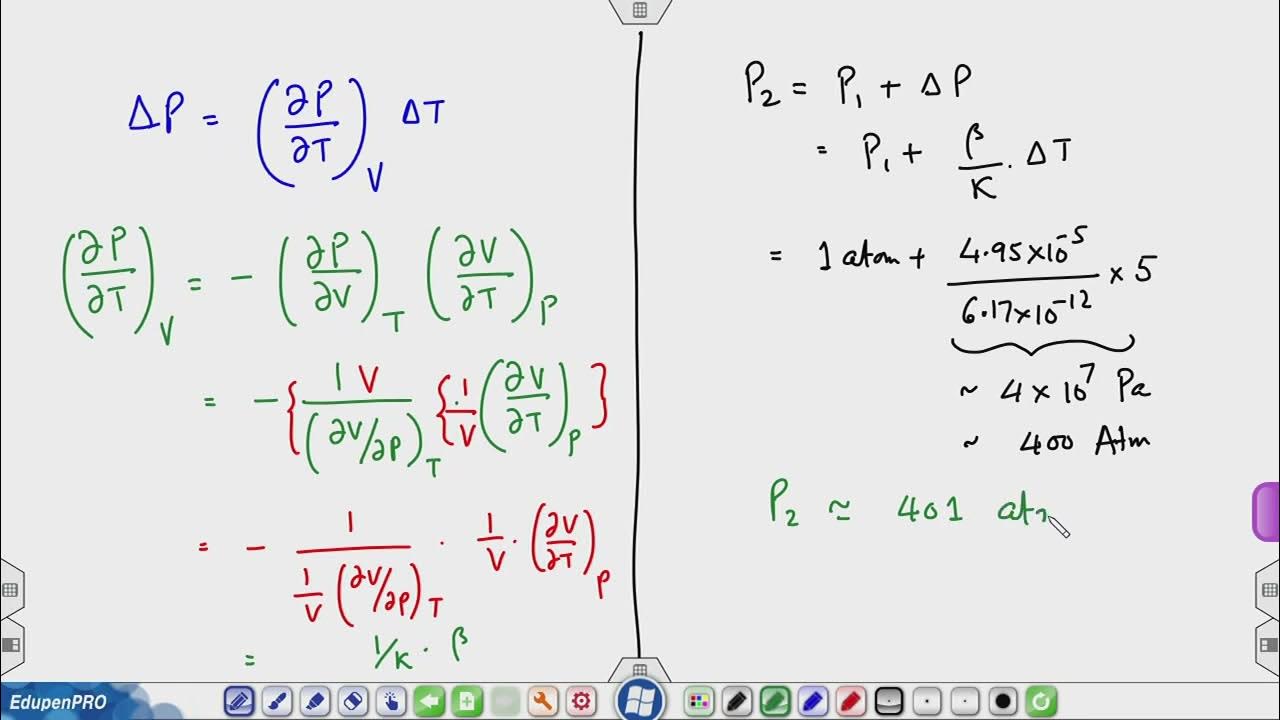 ΔP = (∂P/∂T)_V ΔT
(∂P/∂T)_V = - (∂P/∂V)_T (∂V/∂T)_P
= -{ 1 V / (∂V/∂P)_T { 1/V (∂V/∂T)_P }
= - 1 / ( 1/V (∂V/∂P)_T ) · 1/V · (∂V/∂T)_P
= 1/K · β
P₂ = P₁ + ΔP
= P₁ + β/K . ΔT
= 1 atom + 4.95×10⁻⁵ / 6.17×10⁻¹² × 5
~ 4 × 10⁷ Pa
~ 400 Atm
P₂ ≃ 401 at
EdupenPRO